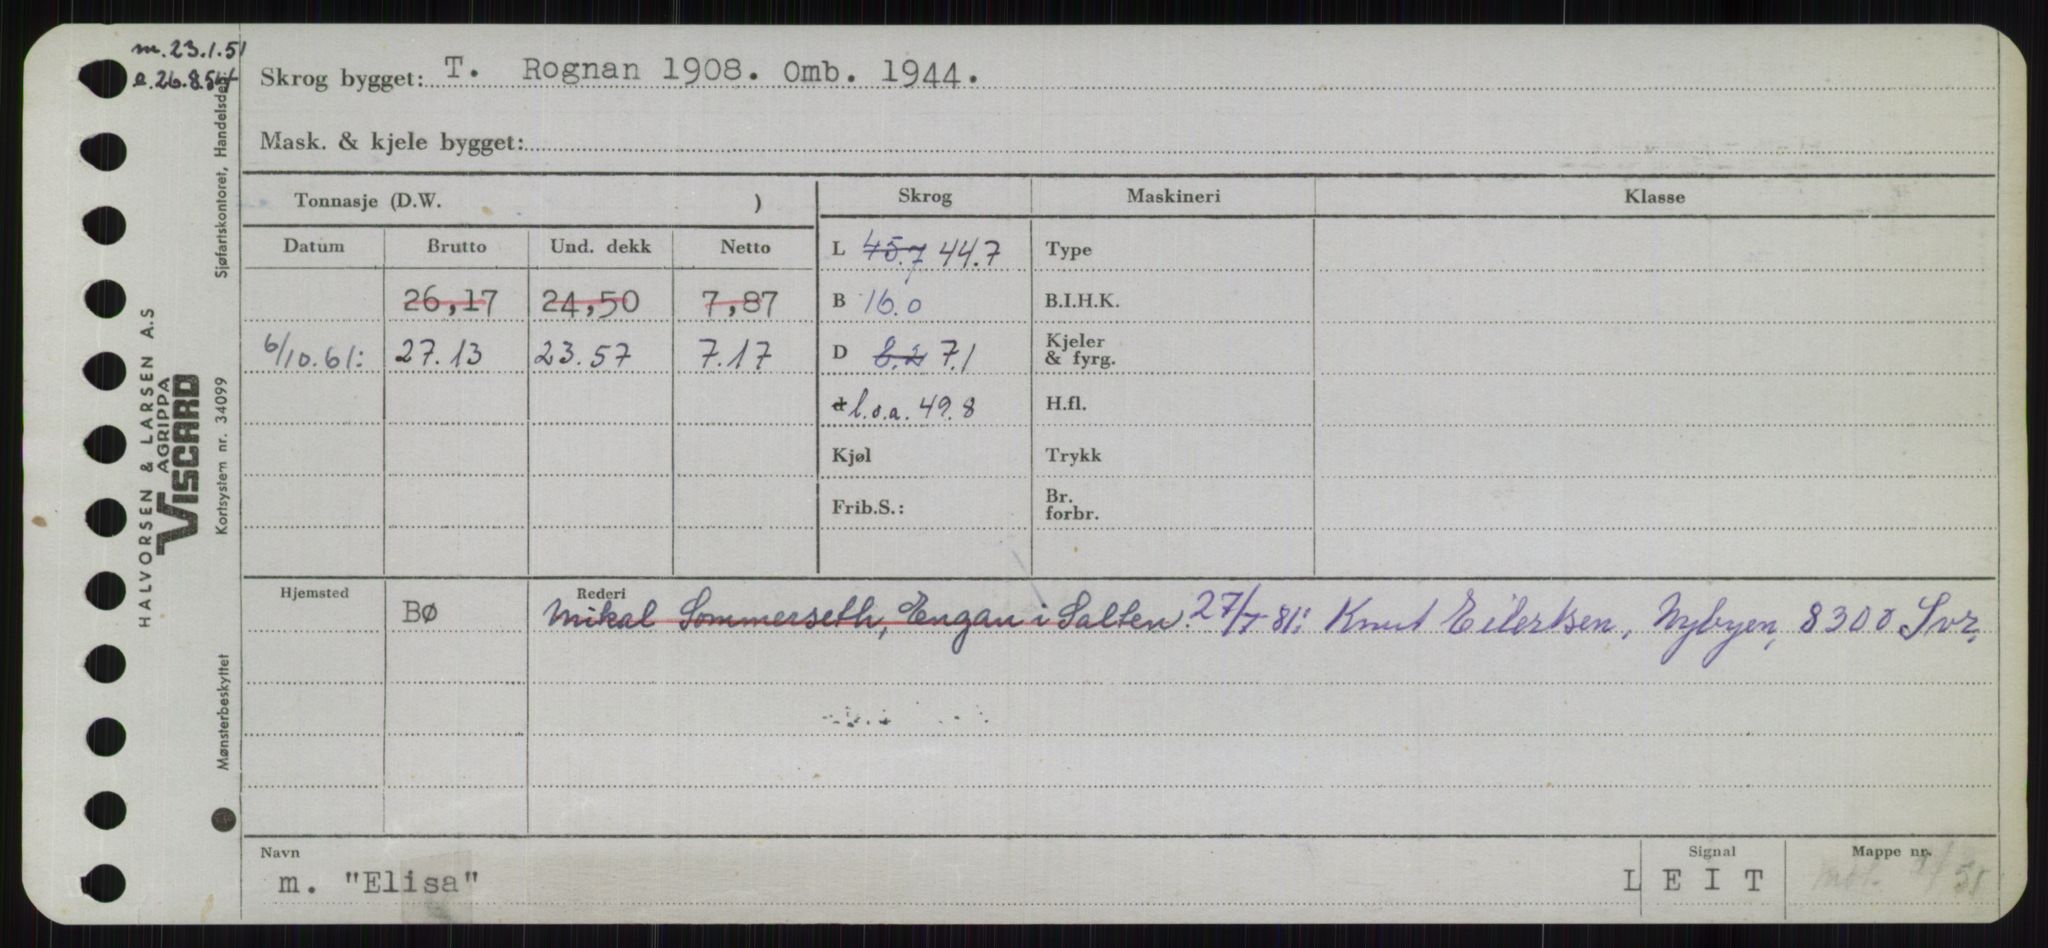 m. 23.1.51
e. 26.8.54
Skrog bygget: T. Rognan 1908. Omb. 1944.
Mask. & kjele bygget:
Tonnasje (D.W. )
Skrog Maskineri Klasse
Datum Brutto Und. dekk Netto
L 45.7 44.7 Type
26,17 24,50 7,87
B 16.0 B.I.H.K.
6/10.61: 27.13 23.57 7.17
D 8.2 7.1 Kjeler
& fyrg.
d l.o.a. 49.8 H.fl.
Kjøl Trykk
Frib.S.: Br.
forbr.
Hjemsted Rederi
BØ Mikal Sommerseth, Engan i Salten. 27/5-81: Knut Eilertsen, Nybyen, 8300 Svr,
Navn Signal Mappe nr.
m. "Elisa" L E I T
HALVORSEN & LARSEN A.S
AGRIPPA
VISCARD
Sjøfartskontoret, Handelsdep.
Kortsystem nr. 34099
Mønsterbeskyttet